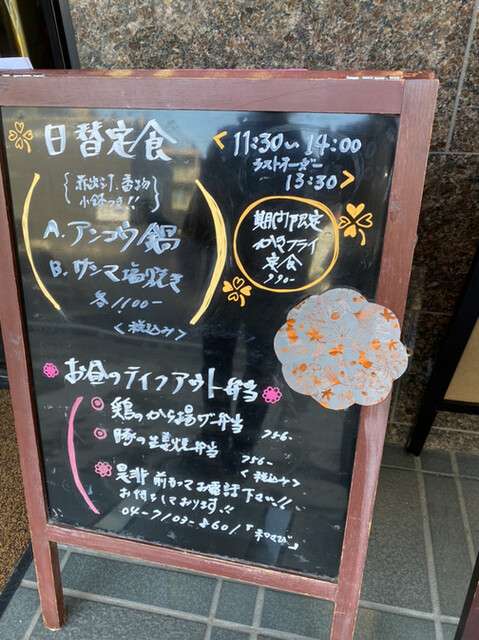 日替定食
{赤出汁、香物
小鉢つき!!}
A. アンコウ鍋
B. サンマ塩焼き
各1100-
<税込み>
<11:30〜14:00
ラストオーダー
13:30>
期間限定
かきフライ
定食
990-
お昼のテイクアウト弁当
◎鶏のから揚げ弁当 756-
◎豚の生姜焼弁当 756-
<税込み>
是非前もってお電話下さい!!
お待ちしております!!
04-7103-8601